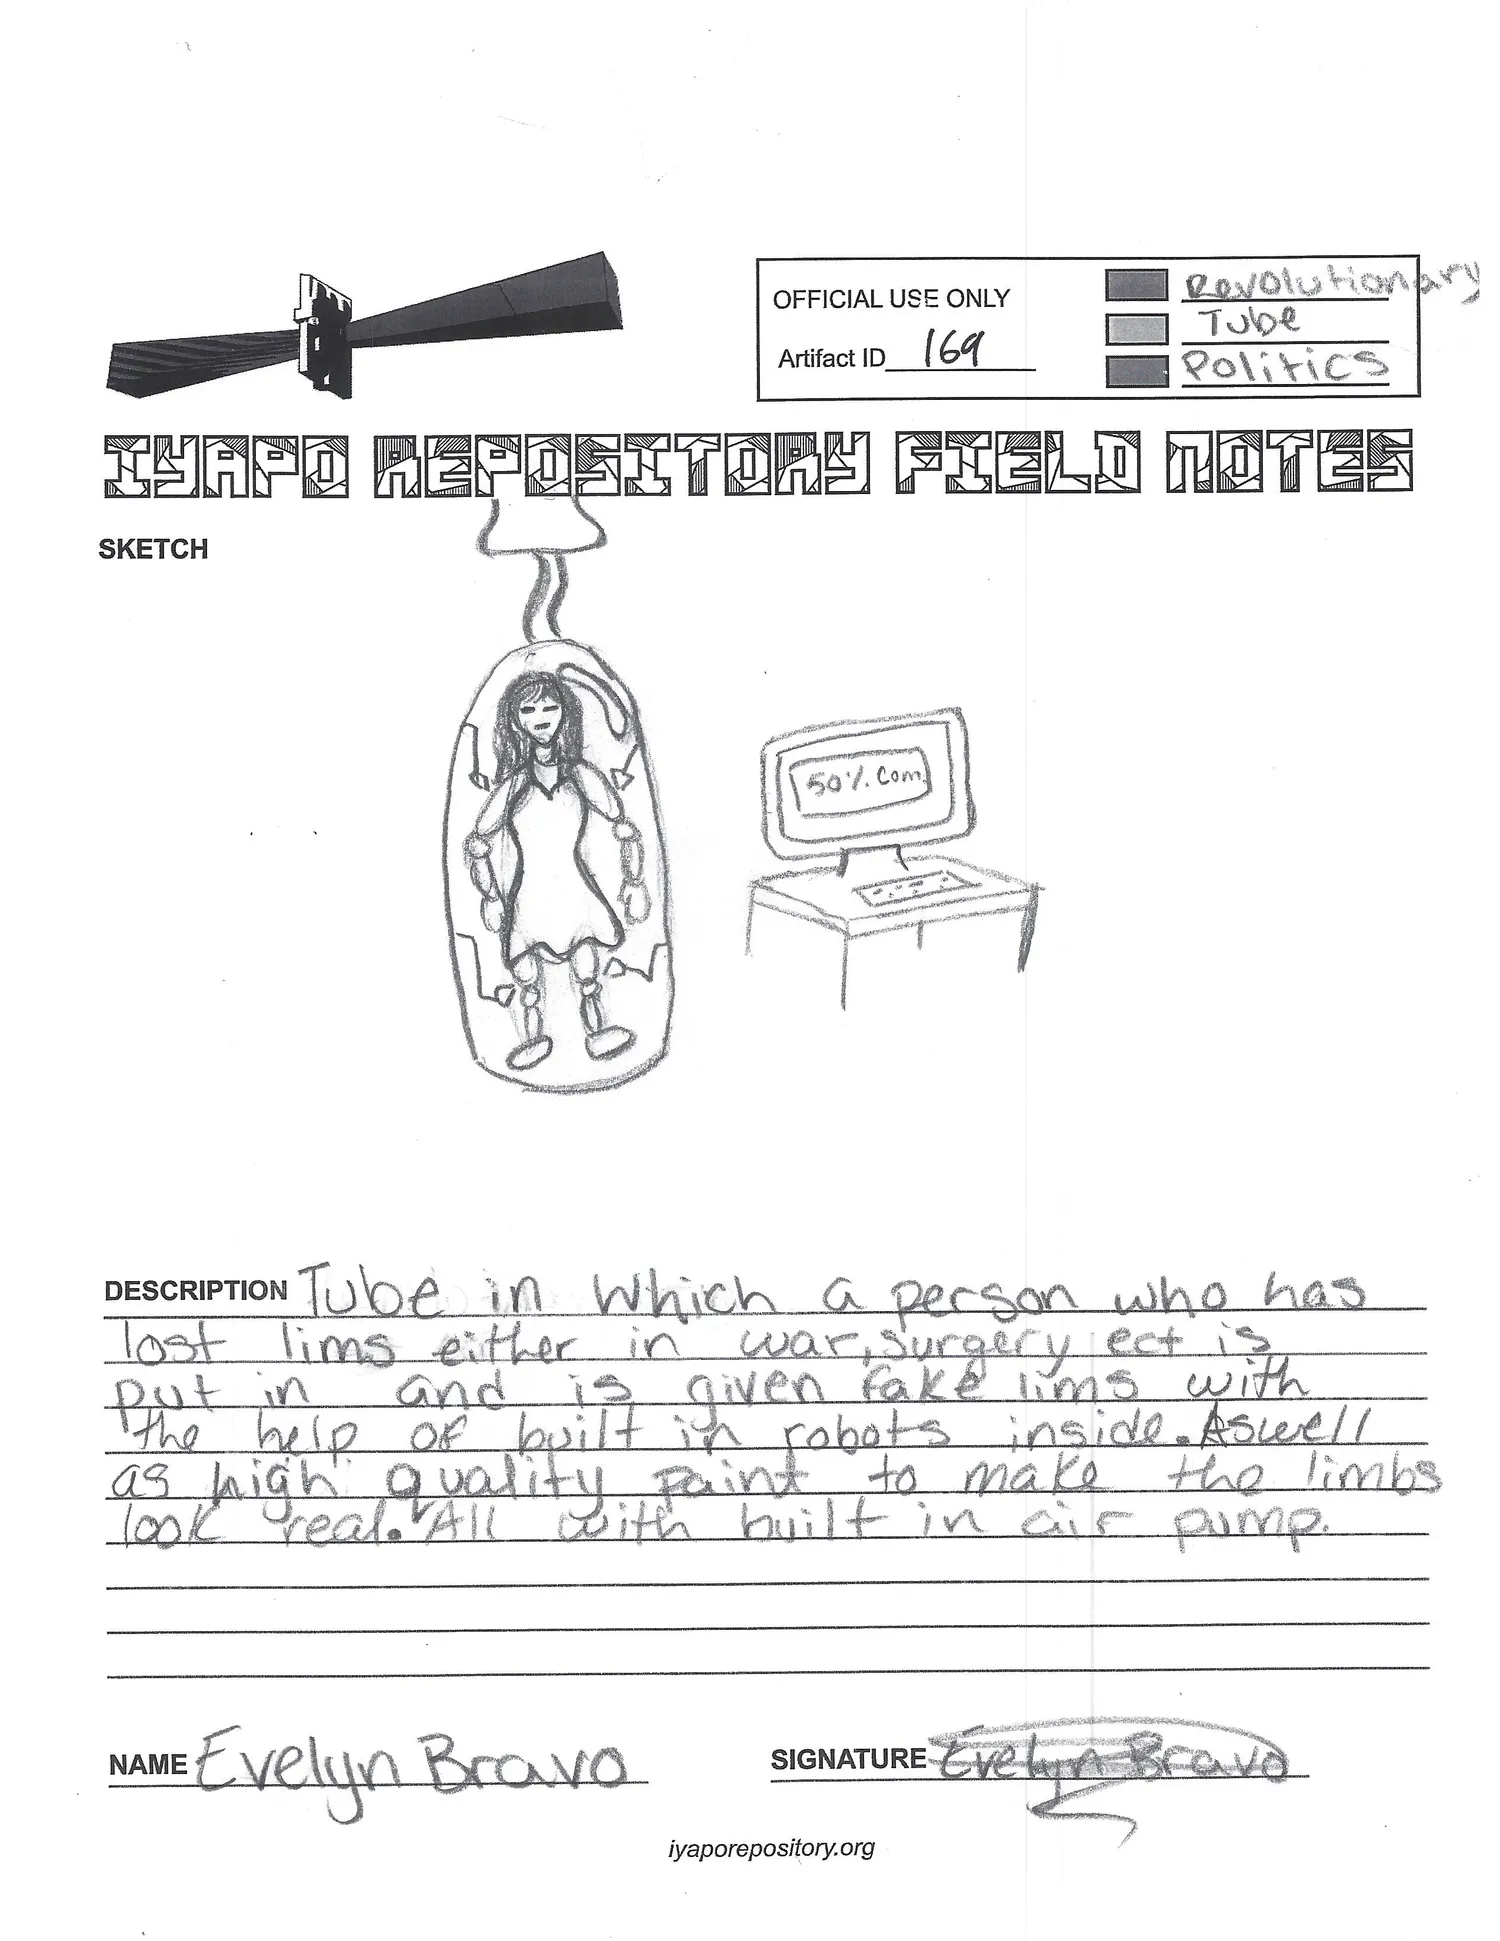 OFFICIAL USE ONLY
Artifact ID 169
Revolutionary
Tube
Politics
IYAPO REPOSITORY FIELD NOTES
SKETCH
50%. Com.
DESCRIPTION Tube in which a person who has
lost lims either in war, surgery ect is
put in and is given fake lims with
the help of built in robots inside. Aswell
as high quality paint to make the limbs
look real. All with built in air pump.
NAME Evelyn Bravo
SIGNATURE Evelyn Bravo
iyaporepository.org